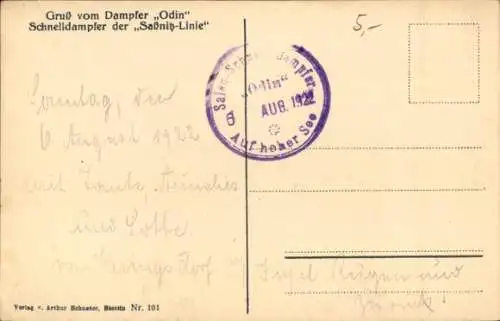 Gruß vom Dampfer „Odin"
Schnelldampfer der „Saßnitz-Linie"
5,-
Salon-Schnelldampfer
„Odin"
6 AUG. 1922
Auf hoher See
Sonntag, den
6 August 1922
mit
und Lotte
Insel Rügen und
zurück
Verlag v. Arthur Schuster, Stettin Nr. 101